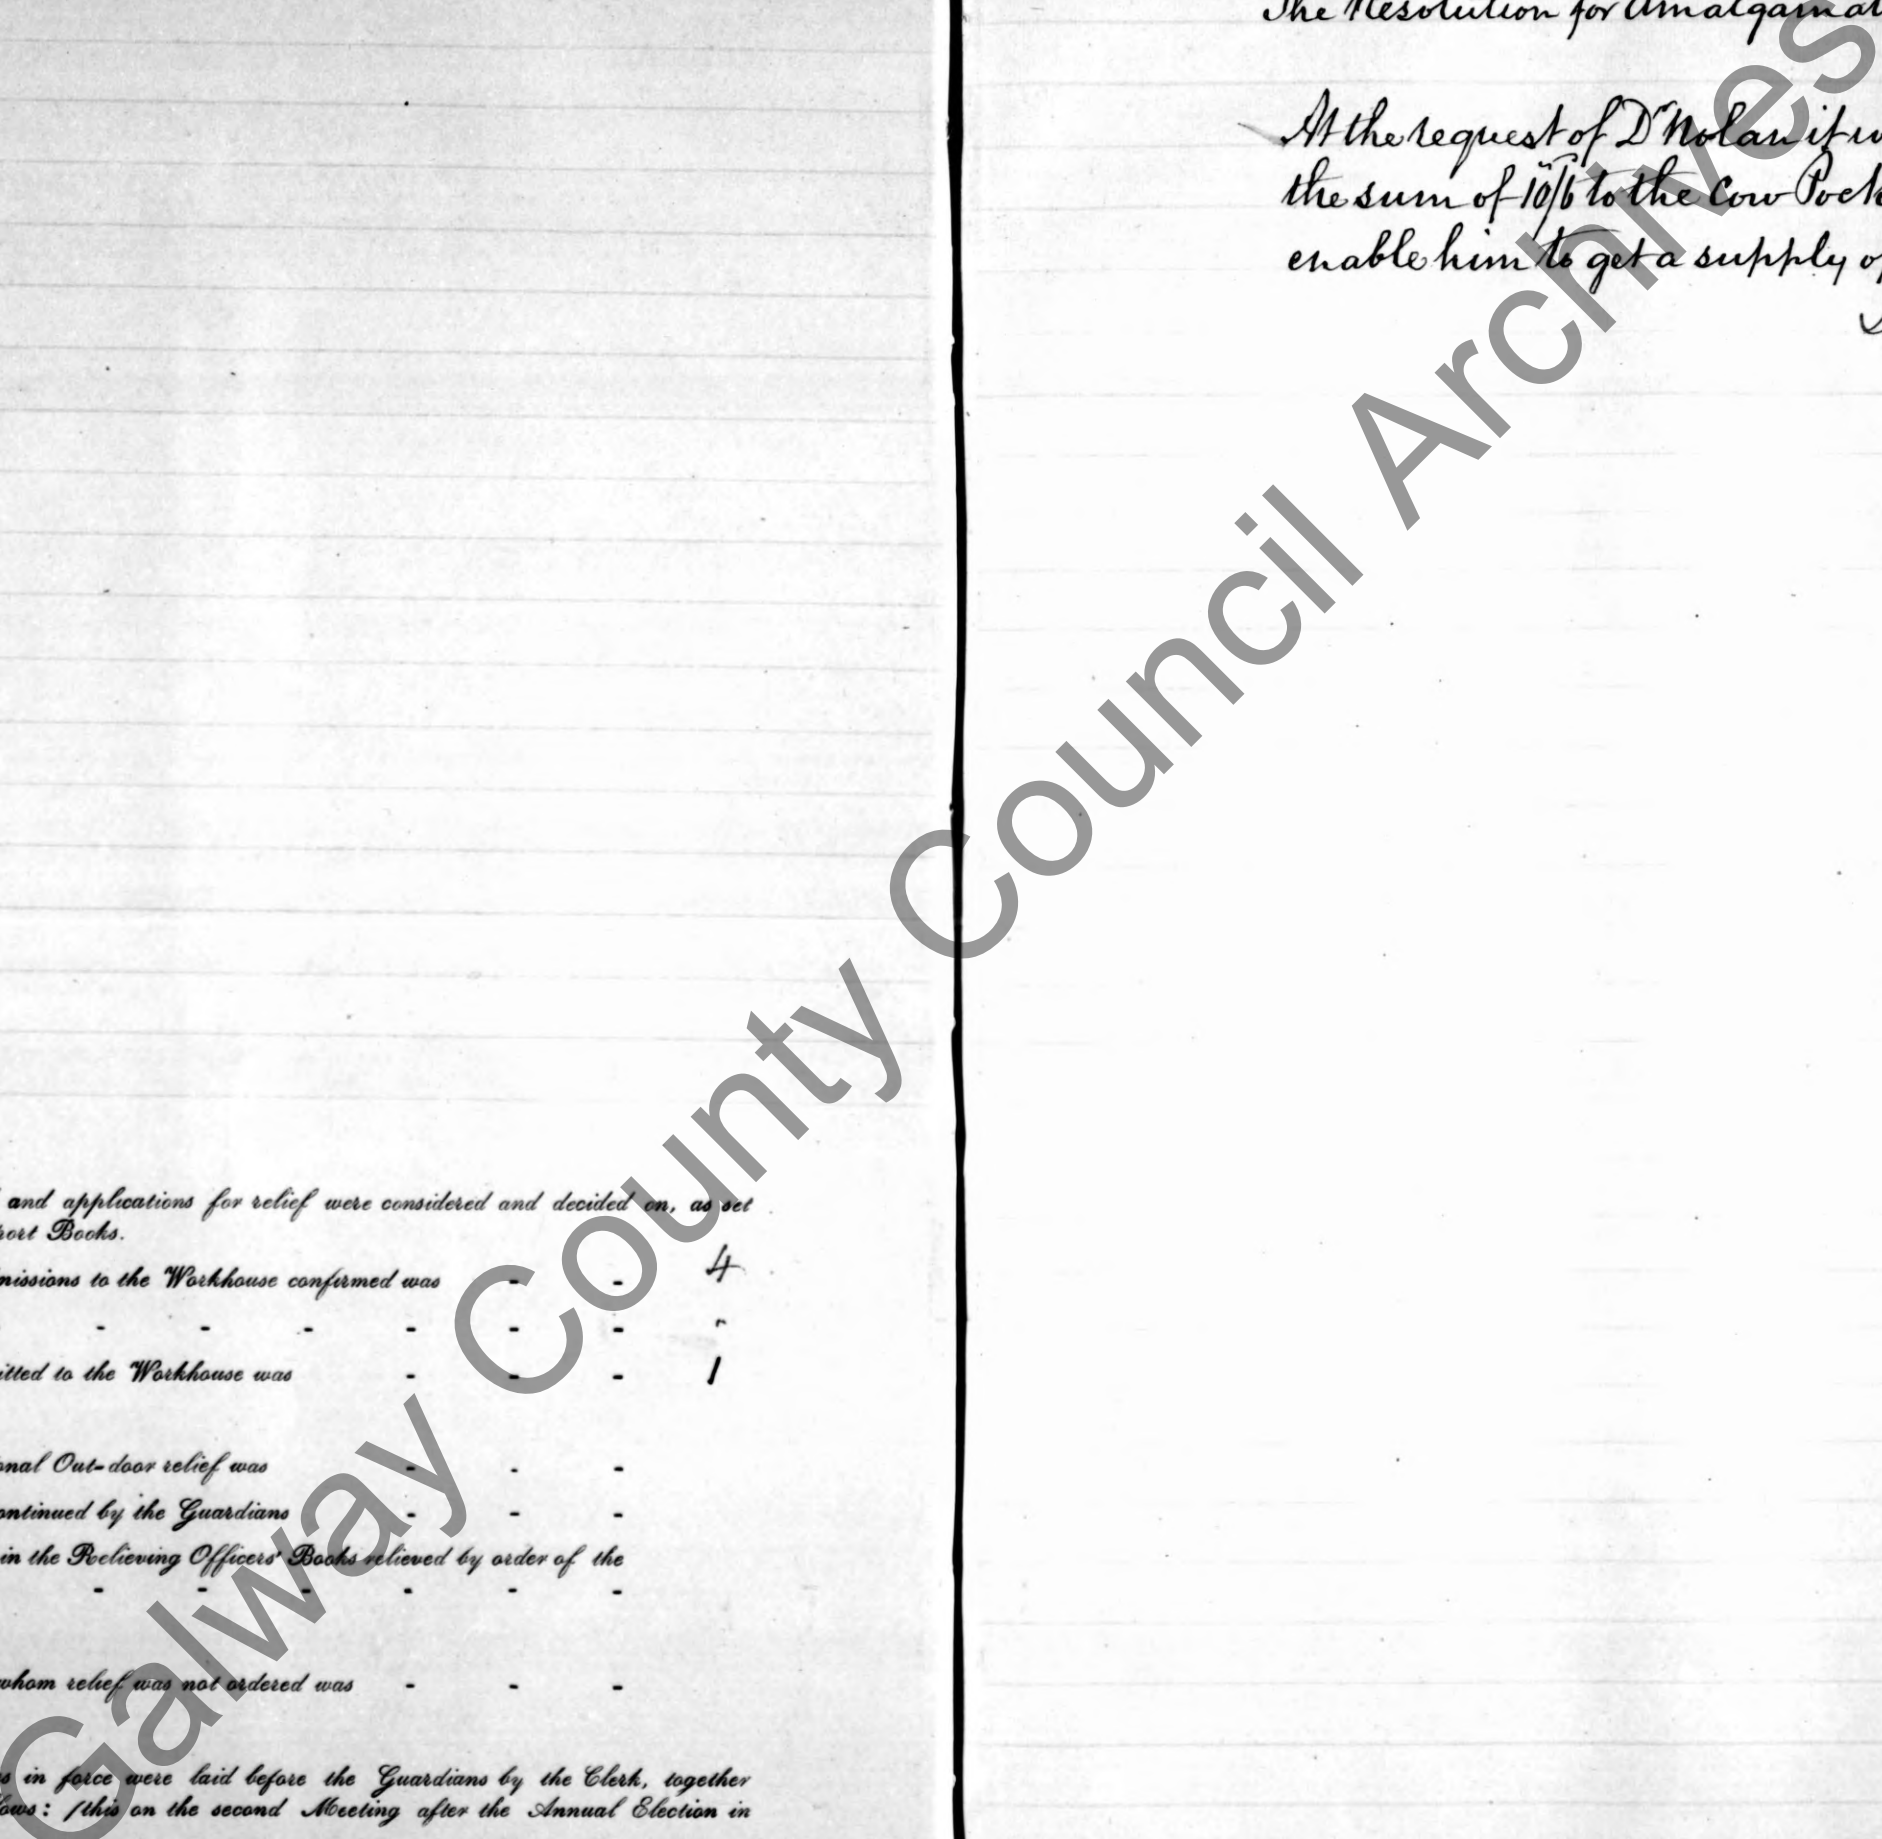 and applications for relief were considered and decided on, as set
port Books.
missions to the Workhouse confirmed was - - 4
- - - - - - "
itted to the Workhouse was - - - 1
onal Out-door relief was - - -
ontinued by the Guardians - - -
in the Relieving Officers' Books relieved by order of the
- - - - - -
whom relief was not ordered was - - -
s in force were laid before the Guardians by the Clerk, together
lows: (this on the second Meeting after the Annual Election in
The Resolution for Amalgamat
At the request of Dr Nolan it w
the sum of 10/6 to the Cow Pock
enable him to get a supply of
Galway County Council Archives